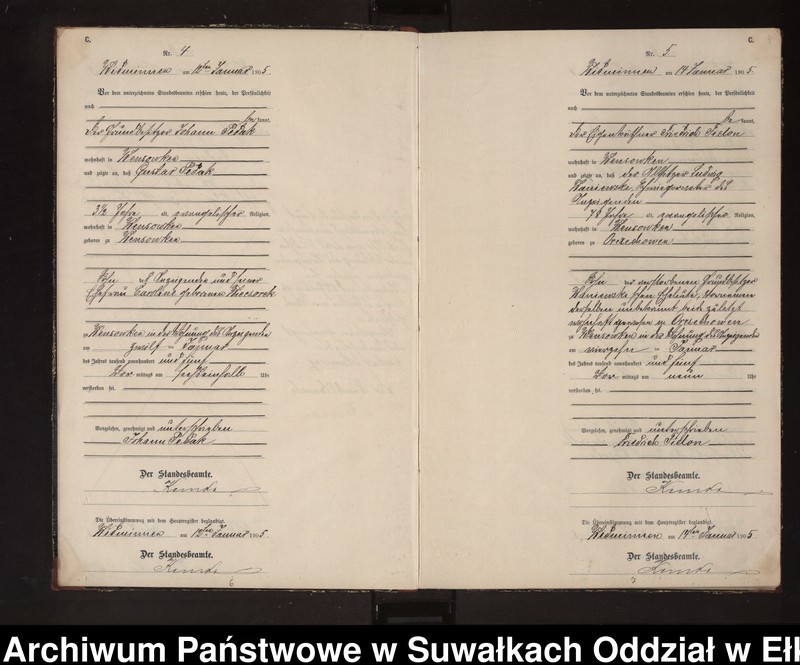 C.
Nr. 4
Widminnen am 12ten Januar 1905.
Vor dem unterzeichneten Standesbeamten erschien heute, der Persönlichkeit
nach
be kannt,
der Grundbesitzer Johann
wohnhaft in Wensowken
und zeigte an, daß Gustav
3½ Jahre alt, evangelischer Religion,
wohnhaft in Wensowken
geboren zu Wensowken
Sohn des Anzeigenden und seiner
Ehefrau Caroline geborenen
zu Wensowken in der Wohnung des Anzeigenden
am zwölf ten Januar
des Jahres tausend neunhundert und fünf
Vor mittags um Uhr
verstorben sei.
Vorgelesen, genehmigt und unterschrieben
Johann
Der Standesbeamte.
Die Übereinstimmung mit dem Hauptregister beglaubigt.
Widminnen am 12ten Januar 1905.
Der Standesbeamte.
C.
Nr. 5.
Widminnen am 14 Januar 1905.
Vor dem unterzeichneten Standesbeamten erschien heute, der Persönlichkeit
nach
be kannt,
der Eigenkäthner Friedrich
wohnhaft in Wensowken
und zeigte an, daß der Altsitzer Ludwig
Schwiegervater des
Anzeigenden
Jahre alt, evangelischer Religion,
wohnhaft in Wensowken
geboren zu Orzechowen
Sohn der verstorbenen Grundbesitzer
Eheleute, Vornamen
derselben unbekannt beide zuletzt
wohnhaft gewesen in Orzechowen
zu Wensowken in der Wohnung des Anzeigenden
am vierzehn ten Januar
des Jahres tausend neunhundert und fünf
Vor mittags um neun Uhr
verstorben sei.
Vorgelesen, genehmigt und unterschrieben
Friedrich
Der Standesbeamte.
Die Übereinstimmung mit dem Hauptregister beglaubigt.
Widminnen am 14ten Januar 1905
Der Standesbeamte.
Archiwum Państwowe w Suwałkach Oddział w Eł